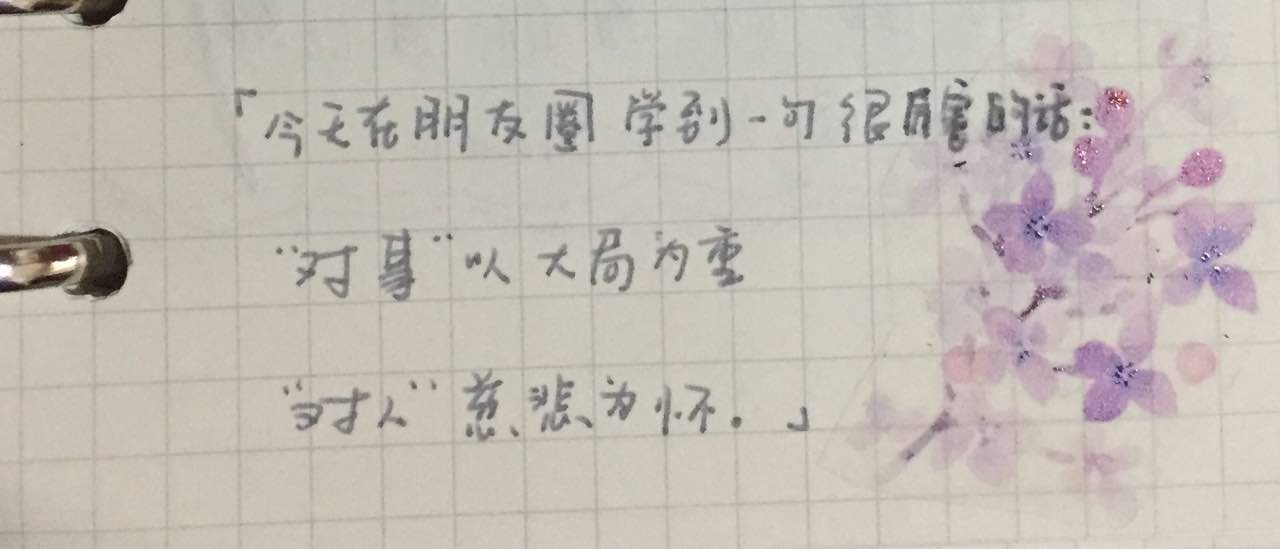 「今天在朋友圈学到一句很厉害的话:
“对事”以大局为重
“对人”慈悲为怀。」